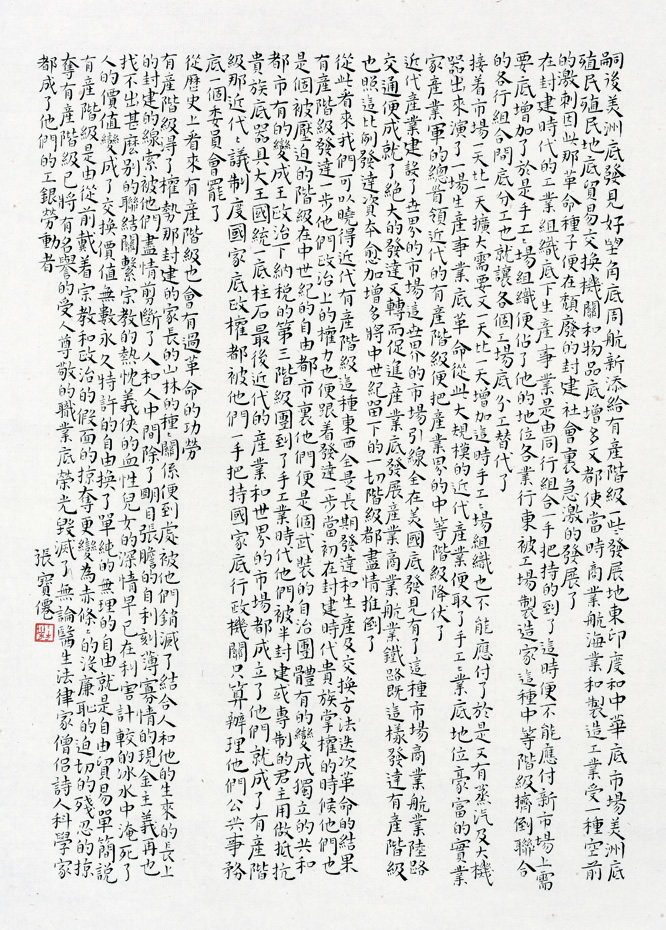 嗣後美洲底發見好望角底周航新添給有產階級一些發展地東印度和中華底市場美洲底
殖民殖民地底貿易交換機關和物品底增多又都使當時商業航海業和製造工業受一種空前
的激刺因此那革命種子便在頹廢的封建社會裏急激的發展了
在封建時代的工業組織底下生產事業是由同行組合一手把持的到了這時便不能應付新市場上需
要底增加了於是手工々場組織便佔了他的地位各業行東被工場製造家這種中等階級擠倒聯合
的各行組合間底分工也就讓各個工場底分工替代了
接着市場一天比一天擴大需要又一天比一天增加這時手工々場組織也不能應付了於是又有蒸汽及大機
器出來演了一場生產事業底革命從此大規模的近代產業便取了手工々業底地位豪富的實業
家產業軍的總首領近代的有產階級便把產業界的中等階級降伏了
近代產業建設了世界的市場這世界的市場引線全在美國底發見有了這種市場商業航業陸路
交通便成就了絕大的發達又轉而促進產業底發展產業商業航業鐵路既這樣發達有產階級
也照這比例發達資本愈加增多將中世紀留下的一切階級都盡情推倒了
從此看來我們可以曉得近代有產階級這種東西全是長期發達和生產及交換方法迭次革命的結果
有產階級發達一步他們政治上的權力也便跟着發達一步當初在封建時代貴族掌權的時候他們也
是個被壓迫的階級在中世紀的自由都市裏他們便是個武裝的自治團體有的變成獨立的共和
都市有的變成王政治下納稅的第三階級團到了手工業時代他們被半封建或專制的君主用做抵抗
貴族底器具大王國統一底柱石最後近代的產業和世界的市場都成立了他們就成了有產階
級那近代々議制度國家底政權都被他們一手把持國家底行政機關只算辦理他們公共事務
底一個委員會罷了
從歷史上看來有產階級也會有過革命的功勞
有產階級得了權勢那封建的家長的山林的種々關係便到處被他們銷滅了結合人和他的生來的長上
的封建的線索被他們盡情剪斷了人和人中間除了明目張膽的自利刻薄寡情的現金主義再也
找不出甚麼別的聯結關繫宗教的熱忱義俠的血性兒女的深情早已在利害計較的冰水中淹死了
人的價值變成了交換價值無數永久特許的自由換了單純的無理的自由就是自由貿易單簡說
有產階級是由從前戴着宗教和政治的假面的掠奪更變為赤條々的沒廉恥的迫切的殘忍的掠
奪有產階級已將有名譽的受人尊敬的職業底榮光毀滅了無論醫生法律家僧侶詩人科學家
都成了他們的工銀勞動者
張寶僊